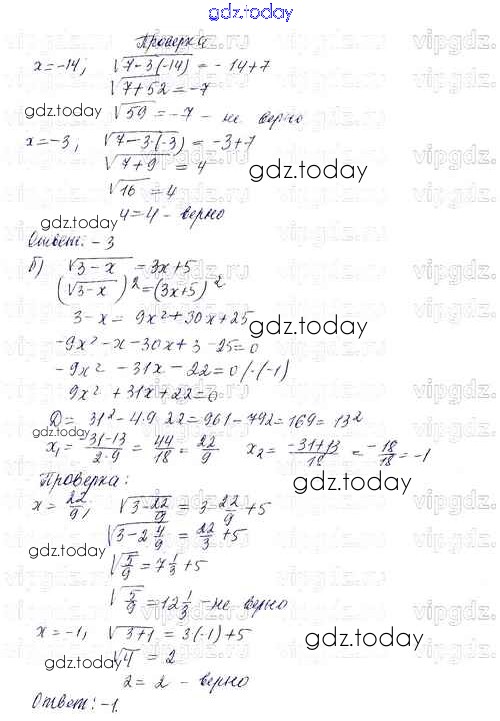 gdz.today
Проверка
x=-14; √(7-3(-14)) = -14+7
√(7+52) = -7
gdz.today
√59 = -7 - не верно
x=-3; √(7-3·(-3)) = -3+7
√(7+9) = 4
gdz.today
√16 = 4
gdz.today
4=4 - верно
Ответ: -3
б) √(3-x) = 3x+5
(√(3-x))² = (3x+5)²
3-x = 9x²+30x+25
gdz.today
-9x²-x-30x+3-25=0
-9x²-31x-22=0 /·(-1)
9x²+31x+22=0
D = 31²-4·9·22=961-792=169=13²
gdz.today
x₁ = -31-13/2·9 = 44/18 = 22/9 x₂ = -31+13/18 = -18/18 = -1
Проверка:
gdz.today
x = 22/9, √(3-22/9) = 3·22/9+5
√(3-2 4/9) = 22/3+5
gdz.today
√(5/9) = 7 1/3+5
√(5/9) = 12 1/3 - не верно
x=-1, √(3+1) = 3(-1)+5
gdz.today
√4 = 2
gdz.today
2=2 - верно
Ответ: -1.